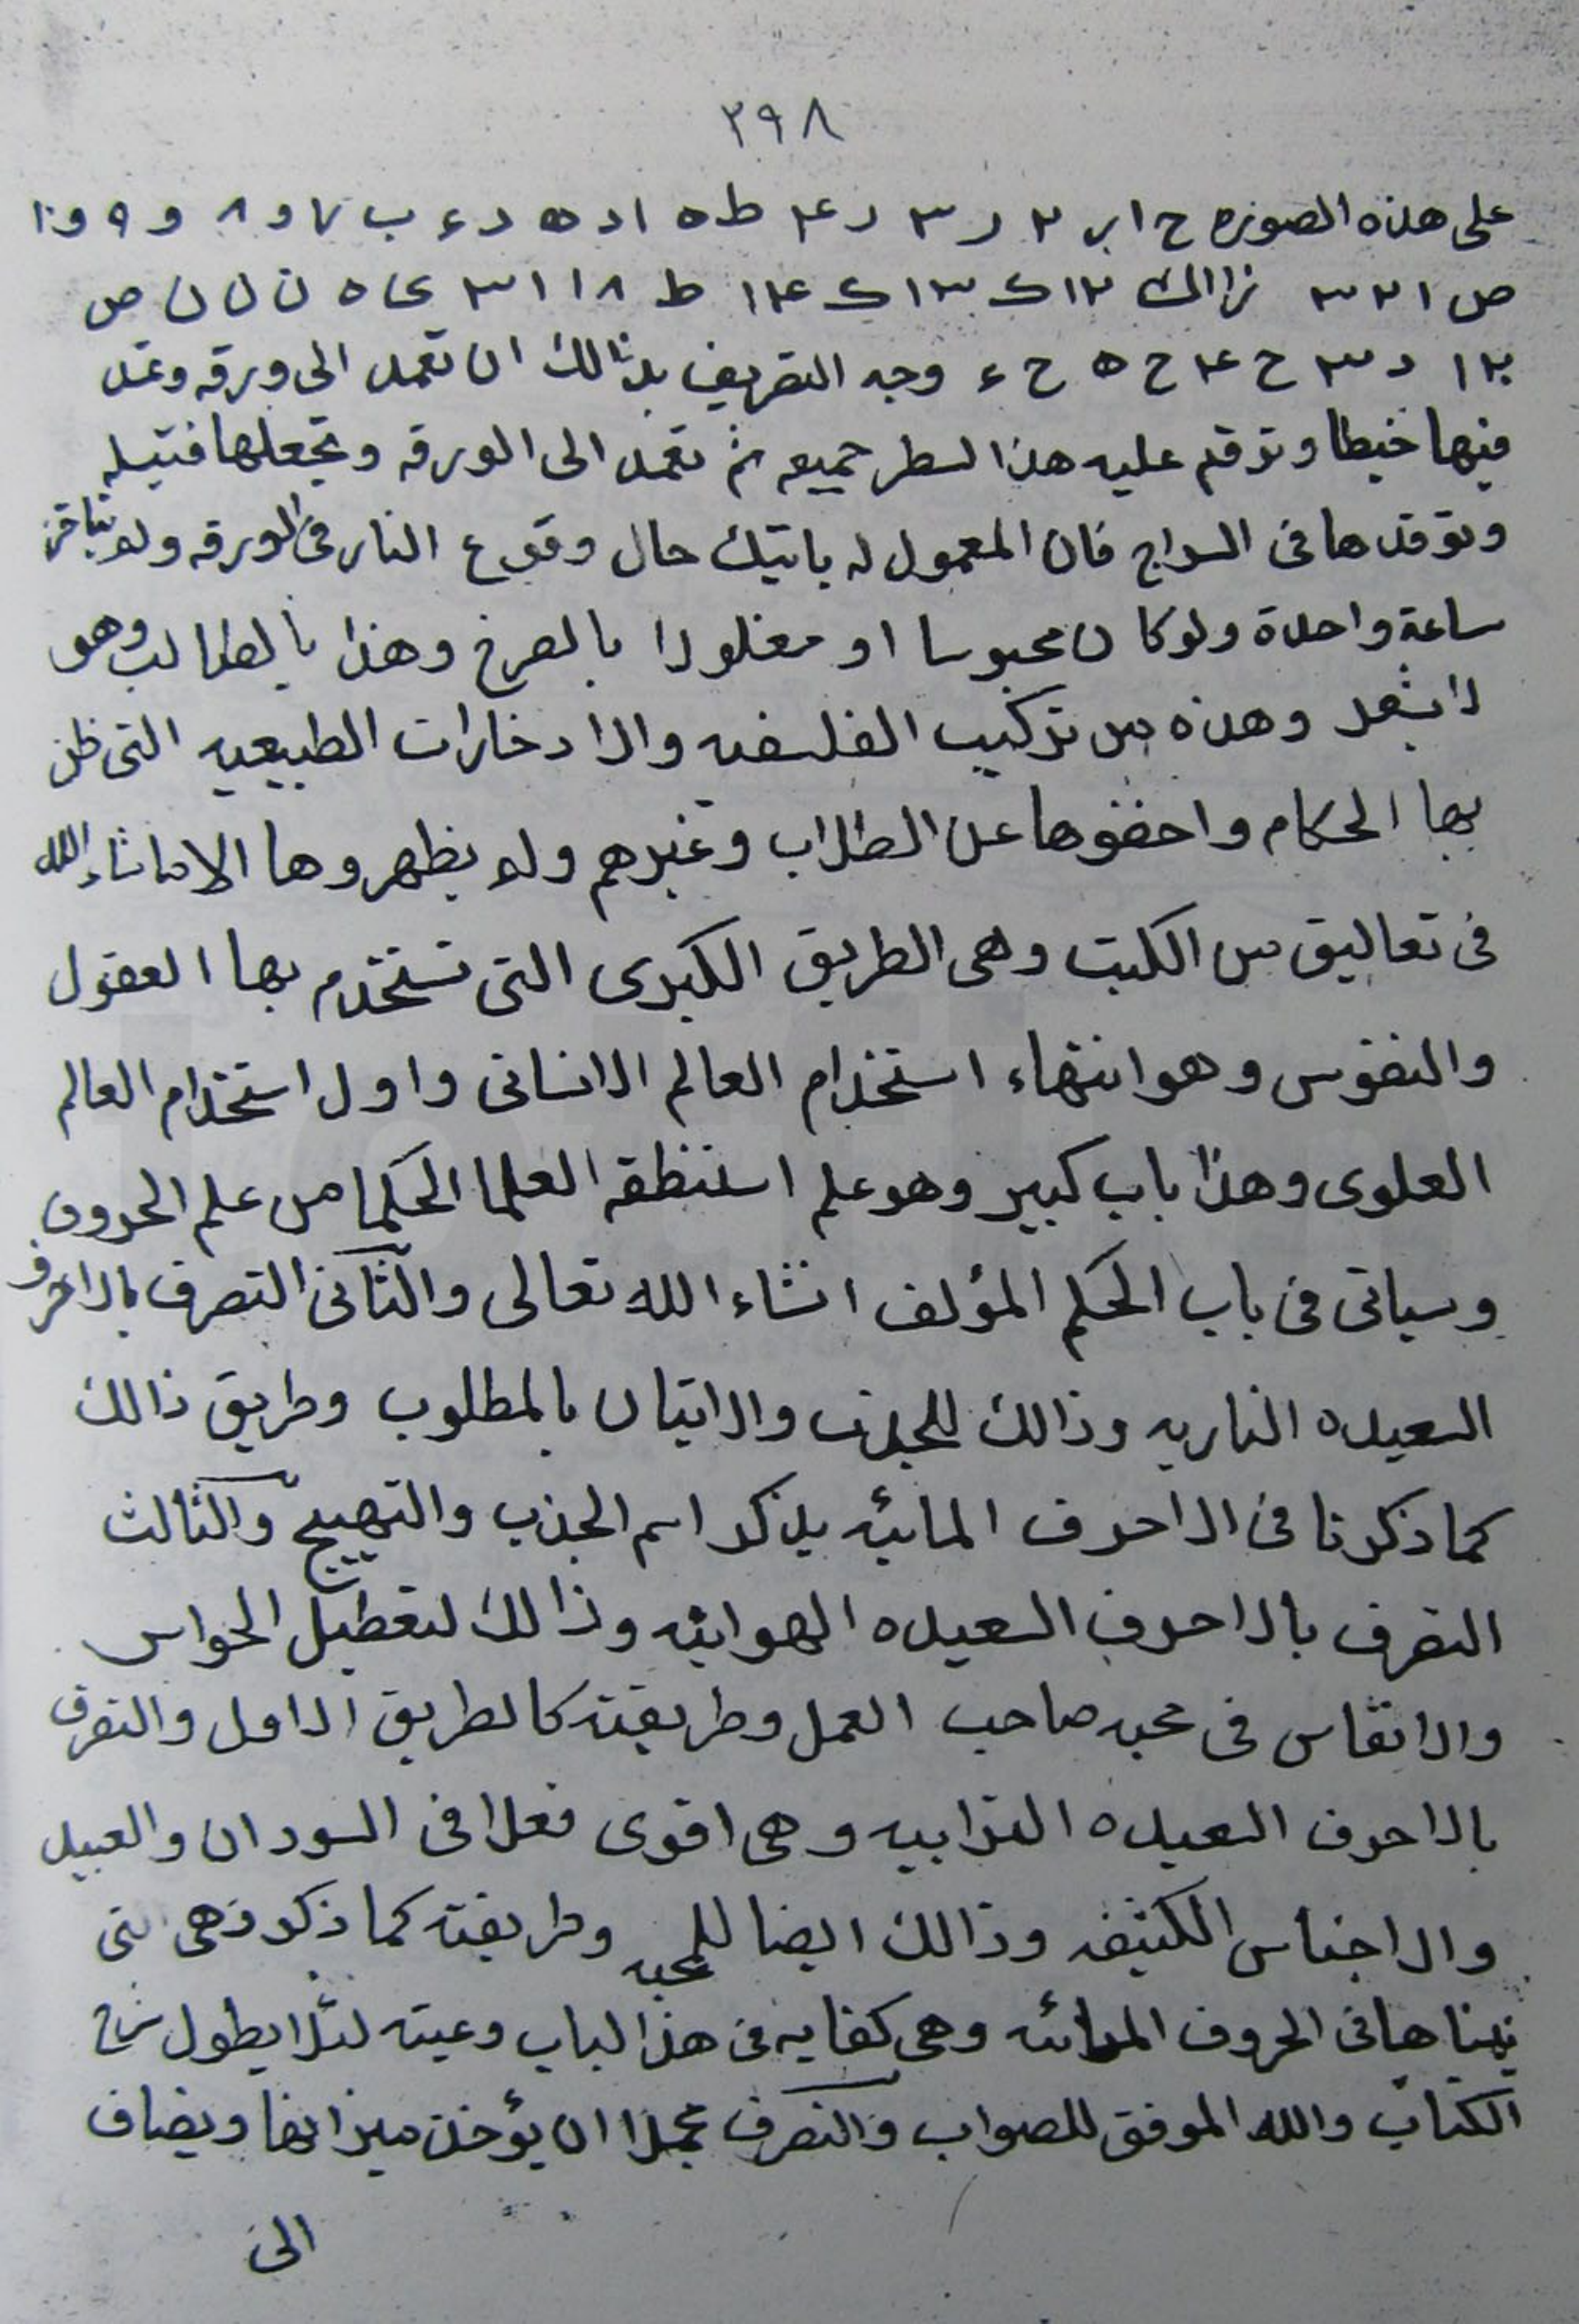 ٢٩٨
على هذه الصوره ح ا بر ٢ ر ٣ ر ٤ ط ه ا د ه د ء ب ٧ و ٨ و ٩ و ١٠
ص ا ٢ ٣ ٣ ط ٨ ا ا ٣ ى ه ن ل ن ص
١٢ د ٣ ح ٤ ح ه ح ء وجه التصريف بذالك ان تعمد الى ورقه وتمد
فيها خيطا وترقم عليه هذا السطر جميعه ثم تعمد الى الورقه وتجعلها فتيله
وتوقدها فى السراج فان المعمول له ياتيك حال وقوع النار فى الورقه ولم يتاخر
ساعة واحدة ولو كان محبوسا او مغلولا بالصرع وهذا بالطالب وهو
لا يشعر وهذه من تركيب الفلسفه والادخارات الطبيعيه التى ظن
بها الحكام واخفوها عن الطلاب وغيرهم ولم يظهروها الا ماشاء الله
فى تعاليق من الكتب وهى الطريق الكبرى التى تستخدم بها العقول
والنفوس وهو انتهاء استخدام العالم الانسانى واول استخدام العالم
العلوى وهذا باب كبير وهو علم استنطقه العلما الحكما من علم الحروف
وسياتى فى باب الحكم المؤلف انشاء الله تعالى والثانى التصرف بالاحرف
السعيده الناريه وذالك للجذب والاتيان بالمطلوب وطريق ذالك
كما ذكرنا فى الاحرف المائيه بذكر اسم الجذب والتهييج والثالث
التصرف بالاحرف السعيده الهوائيه وذالك لتعطيل الحواس
والانغاس فى محبه صاحب العمل وطريقته كالطريق الاول والتصرف
بالاحرف السعيده الترابيه وهى اقوى فعلا فى السودان والعبيد
والاجناس الكثيفه وذالك ايضا للمحبه وطريقته كما ذكر فهى التى
بيناها فى الحروف المائيه وهى كفايه فى هذا الباب وعيته لئلا يطول شرح
الكتاب والله الموفق للصواب والتصرف مجملا ان يؤخذ ميزانها ويضاف
الى